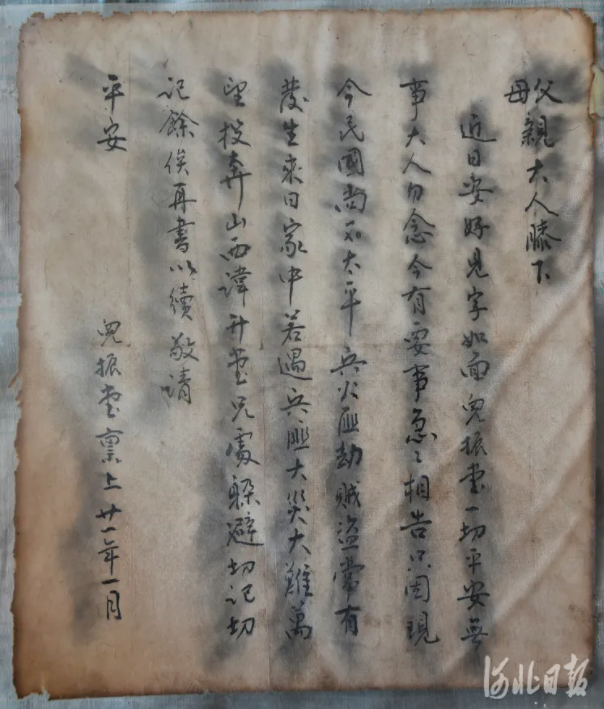 父母親大人膝下
近日安好見字如面兒振堂一切平安無
事大人勿念今有要事急々相告只因現
今民國尚不太平兵火匪劫賊盜常有
發生來日家中若遇兵匪大災大難萬
望投奔山西諱升堂兄處躲避切記切
記餘俟再書以續敬請
平安
兒振堂稟上廿一年一月
河北日報